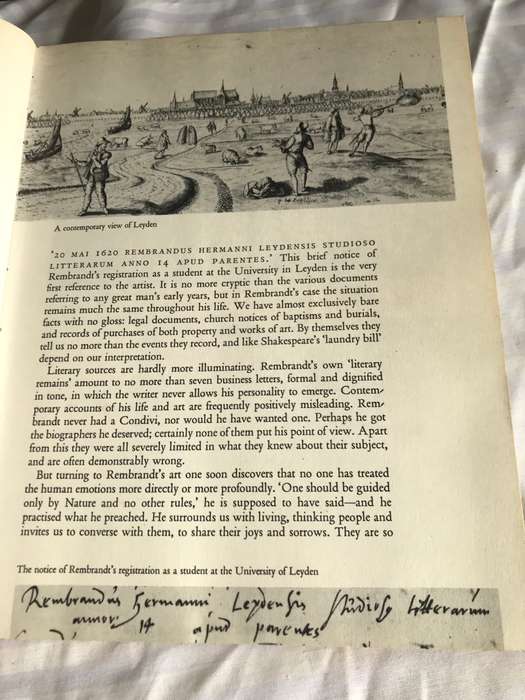 A contemporary view of Leyden
'20 MAI 1620 REMBRANDUS HERMANNI LEYDENSIS STUDIOSO
LITTERARUM ANNO 14 APUD PARENTES.' This brief notice of
Rembrandt's registration as a student at the University in Leyden is the very
first reference to the artist. It is no more cryptic than the various documents
referring to any great man's early years, but in Rembrandt's case the situation
remains much the same throughout his life. We have almost exclusively bare
facts with no gloss: legal documents, church notices of baptisms and burials,
and records of purchases of both property and works of art. By themselves they
tell us no more than the events they record, and like Shakespeare's 'laundry bill'
depend on our interpretation.
Literary sources are hardly more illuminating. Rembrandt's own 'literary
remains' amount to no more than seven business letters, formal and dignified
in tone, in which the writer never allows his personality to emerge. Contem-
porary accounts of his life and art are frequently positively misleading. Rem-
brandt never had a Condivi, nor would he have wanted one. Perhaps he got
the biographers he deserved; certainly none of them put his point of view. Apart
from this they were all severely limited in what they knew about their subject,
and are often demonstrably wrong.
But turning to Rembrandt's art one soon discovers that no one has treated
the human emotions more directly or more profoundly. 'One should be guided
only by Nature and no other rules,' he is supposed to have said—and he
practised what he preached. He surrounds us with living, thinking people and
invites us to converse with them, to share their joys and sorrows. They are so
The notice of Rembrandt's registration as a student at the University of Leyden
Rembrandus Hermanni Leydensis studioso litterarum
annor. 14 apud parentes